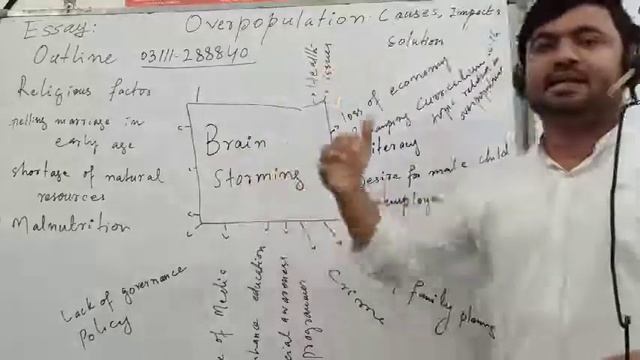 Essay: Overpopulation: Causes, Impacts
Outline 03111-288840 Solution
Religious factor
marriage in
early age
shortage of natural
resources
Malnutrition
Brain
Storming
Health
issues
loss of economy
curriculum
desire for male child
Lack of governance
Policy
of Media
education
awareness
Crime
family planning